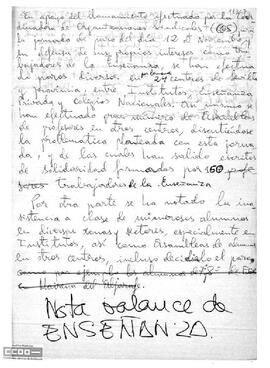 En apoyo del llamamiento efectuado por la Coordinadora de Organizaciones Sindicales (COS)
la jornada de paro del día 12 de Noviembre
en defensa de sus propios intereses como tra-
bajadores de la Enseñanza, se han efectua
do paros diversos en 24 centros de Sevilla
y provincia, entre Institutos, Enseñanza
Privada y Colegios Nacionales. Así mismo se
han efectuado numerosas Asambleas
de profesores en otros centros, discutiéndose
la problemática planteada con esta jorna
da, y de las cuales han salido escritos
de solidaridad firmados por 160 profe-
sores trabajadores de la Enseñanza
Por otra parte se ha notado la ina
sistencia a clase de numerosos alumnos
en diversas zonas y sectores, especialmente en
Institutos, así como Asambleas de alumnos
en otros centros, incluso decidido el paro
como por ejemplo los alumnos de
Nota balance de
ENSEÑANZA.
CCOO